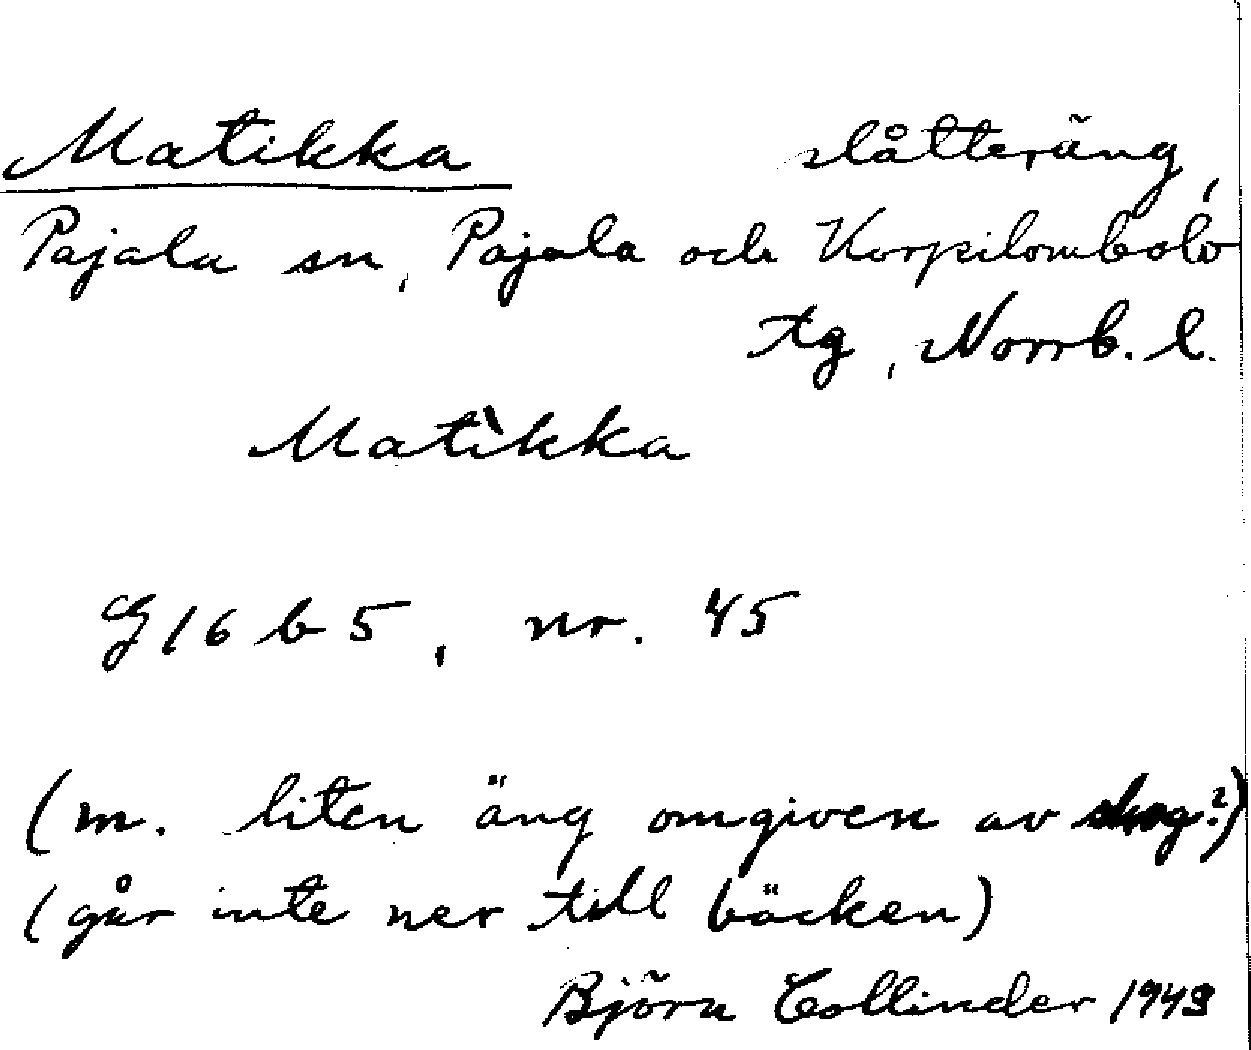 Matikka slåtteräng,
Pajala sn, Pajala och Korpilombolo
tg, Norrb. l.
Matìkka
G16 b 5, nr. 45
(m. liten äng omgiven av skog?)
(går inte ner till bäcken)
Björn Collinder 1943